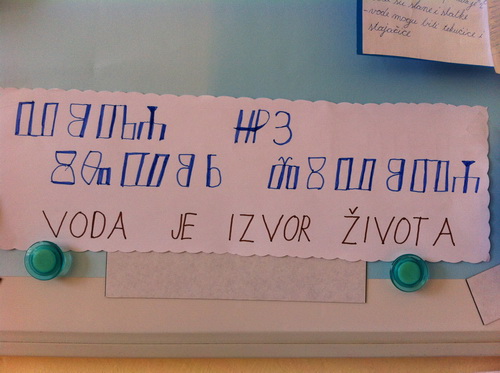 su slane i slatke
- vode mogu biti tekućice i
stajaćice
ⰂⰑⰄⰀ ⰌⰅ
ⰋⰈⰂⰑⰓ ⰆⰋⰂⰑⰕⰀ
VODA JE IZVOR ŽIVOTA